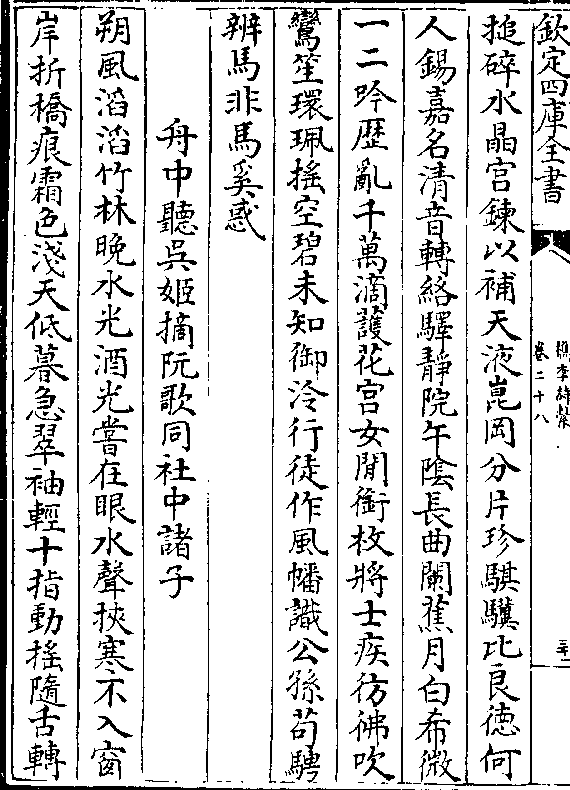 欽定四庫全書
檇李詩繫
卷二十八
三十一
搥碎水晶宫鍊以補天液崑岡分片珍騏驥比良徳何
人錫嘉名清音轉絡驛靜院午隂長曲闌蕉月白希微
一二吟歴亂千萬滴護花宫女閒銜枚將士疾彷彿吹
鸞笙環珮搖空碧未知御泠行徒作風幡識公孫苟騁
辨馬非馬奚惑
舟中聽吳姬摘阮歌同社中諸子
朔風滔滔竹林晚水光酒光嘗在眼水聲挾寒不入窗
岸折橋痕霜色淺天低暮急翠袖輕十指動揺隨舌轉